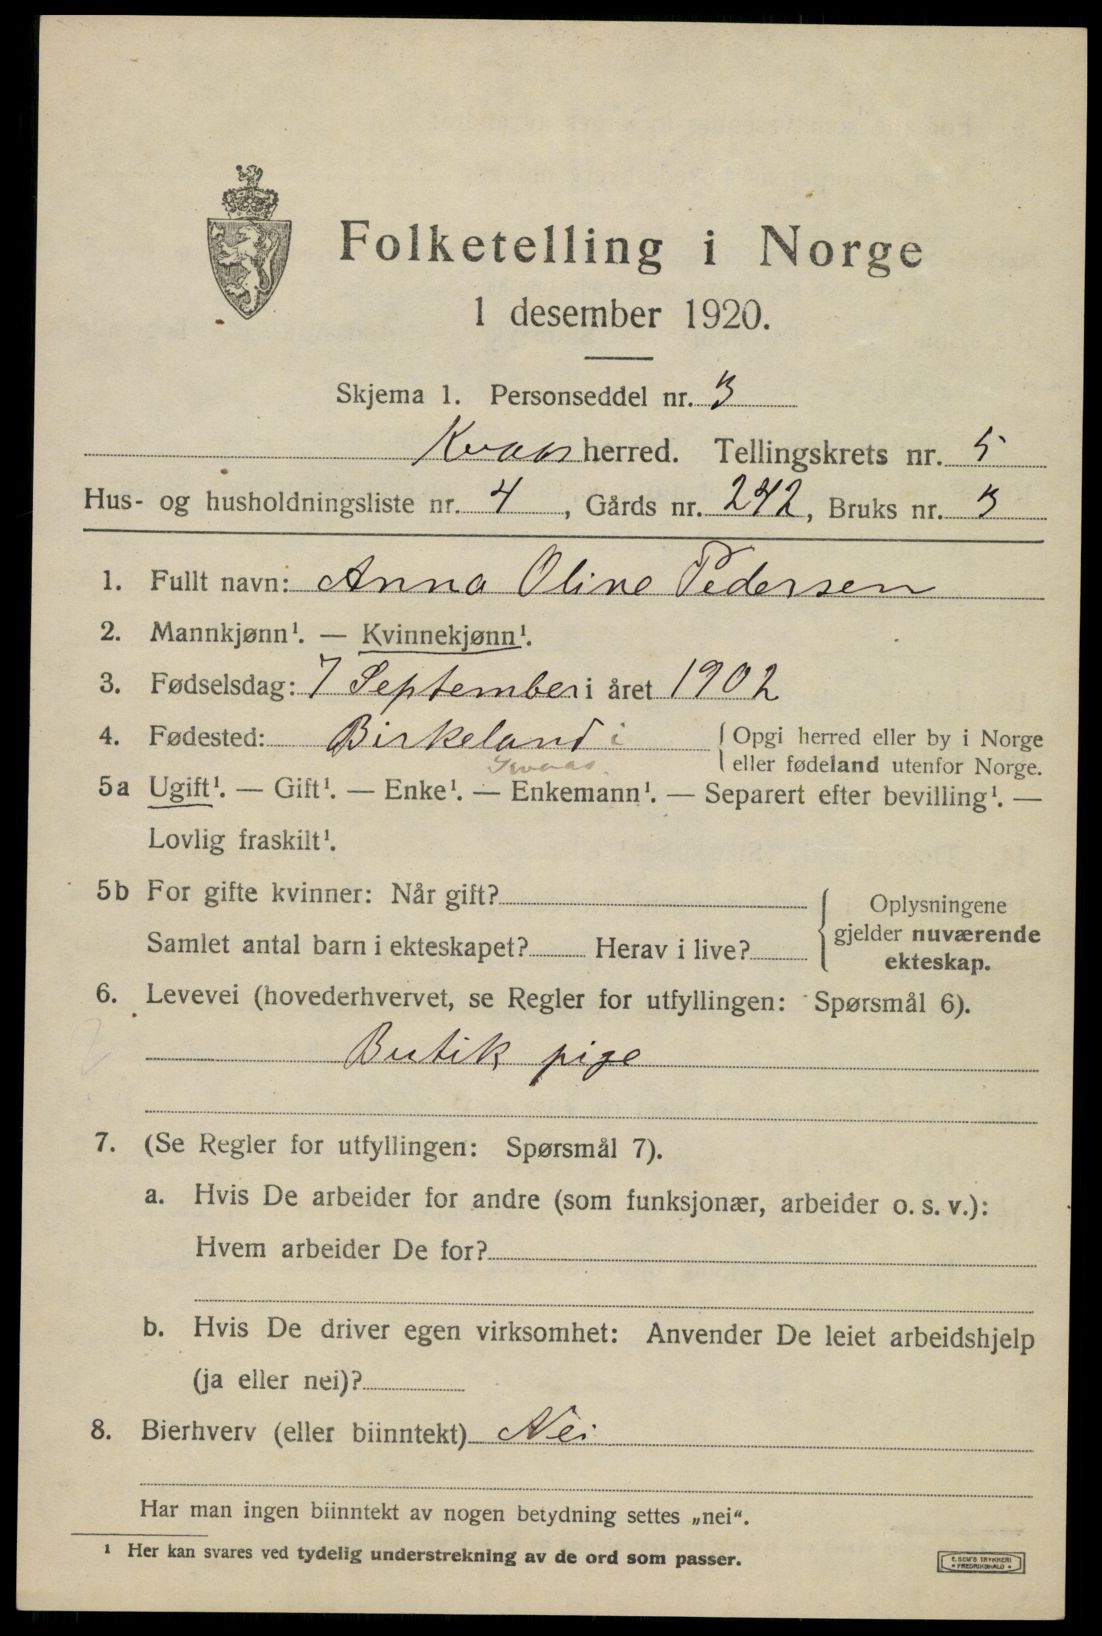 Folketelling i Norge
1 desember 1920.
Skjema 1. Personseddel nr. 3
Kvaas herred. Tellingskrets nr. 5
Hus- og husholdningsliste nr. 4, Gårds nr. 242, Bruks nr. 3
1. Fullt navn: Anna Oline Pedersen
2. Mannkjønn¹. — Kvinnekjønn¹.
3. Fødselsdag: 7 September i året 1902
4. Fødested: Birkeland i
Kvaas.
Opgi herred eller by i Norge
eller fødeland utenfor Norge.
5a Ugift¹. — Gift¹. — Enke¹. — Enkemann¹. — Separert efter bevilling¹. —
Lovlig fraskilt¹.
5b For gifte kvinner: Når gift?
Samlet antal barn i ekteskapet? Herav i live?
Oplysningene
gjelder nuværende
ekteskap.
6. Levevei (hovederhvervet, se Regler for utfyllingen: Spørsmål 6).
Butik pige
7. (Se Regler for utfyllingen: Spørsmål 7).
a. Hvis De arbeider for andre (som funksjonær, arbeider o. s. v.):
Hvem arbeider De for?
b. Hvis De driver egen virksomhet: Anvender De leiet arbeidshjelp
(ja eller nei)?
8. Bierhverv (eller biinntekt) Nei
Har man ingen biinntekt av nogen betydning settes „nei“.
¹ Her kan svares ved tydelig understrekning av de ord som passer.
E. SEM'S TRYKKERI
• FREDRIKSHALD •